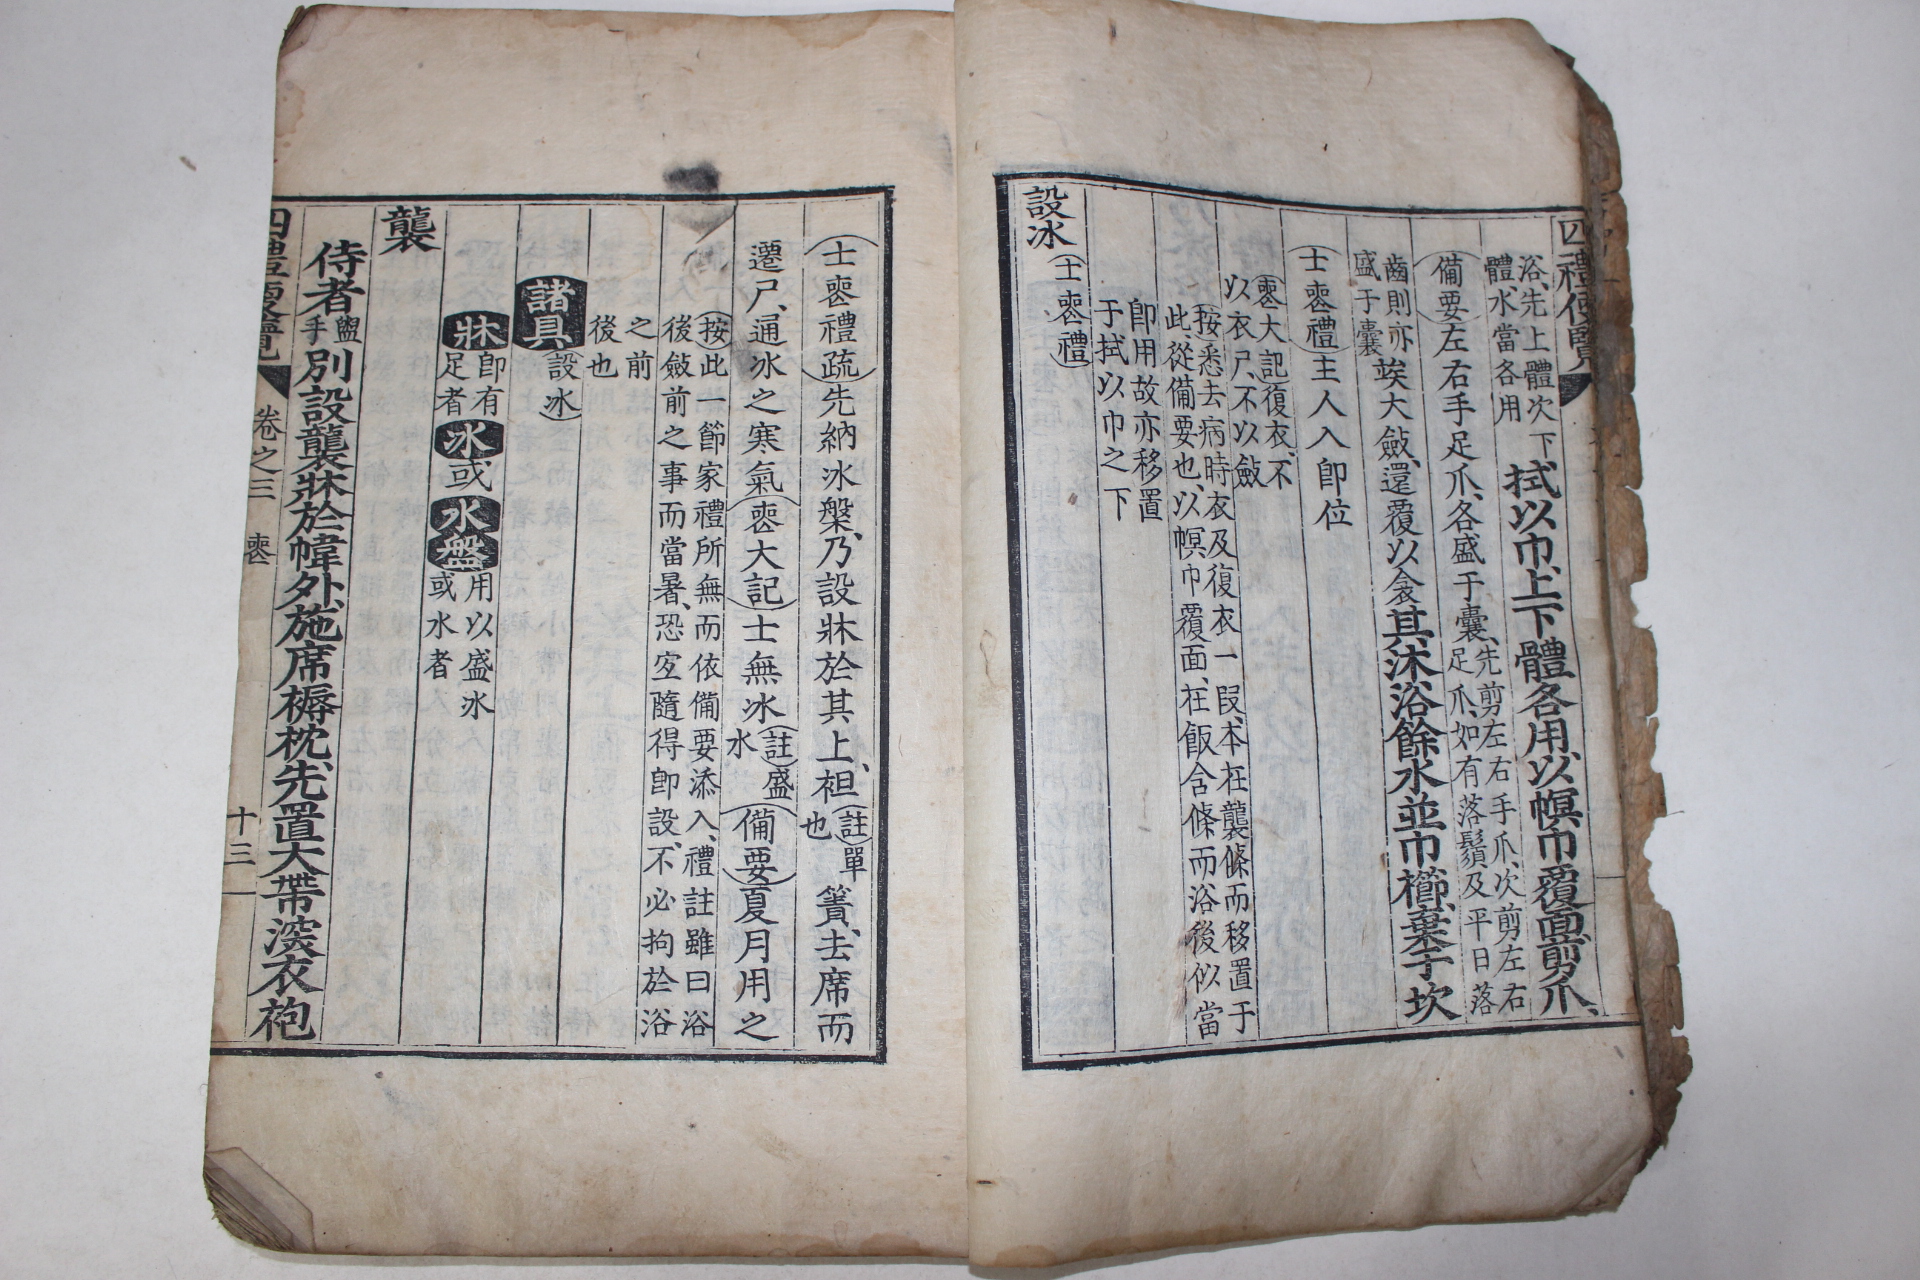 四禮便覽
浴先上體次下
體水當各用
拭以巾上下體各用以幎巾覆面剪爪
備要左右手足爪各盛于囊先剪左右手爪次剪左右
足爪如有落鬚及平日落
齒則亦
盛于囊
俟大斂還覆以衾其沐浴餘水並巾櫛棄于坎
士喪禮主人入卽位
喪大記復衣不
以衣尸不以斂
按悉去病時衣及復衣一段本在襲條而移置于
此從備要也以幎巾覆面在飯含條而浴後似當
卽用故亦移置
于拭以巾之下
設冰
士喪禮
士喪禮疏先納冰槃乃設牀於其上袒註單也簀去席而
遷尸通冰之寒氣喪大記士無冰註盛水備要夏月用之
按此一節家禮所無而依備要添入禮註雖曰浴
後斂前之事而當暑恐宜隨得卽設不必拘於浴
之前
後也
諸具設冰
牀卽有足者冰或水盤用以盛冰或水者
襲
侍者盥手別設襲牀於幃外施席褥枕先置大帶深衣袍
四禮便覽 卷之三 喪 十三